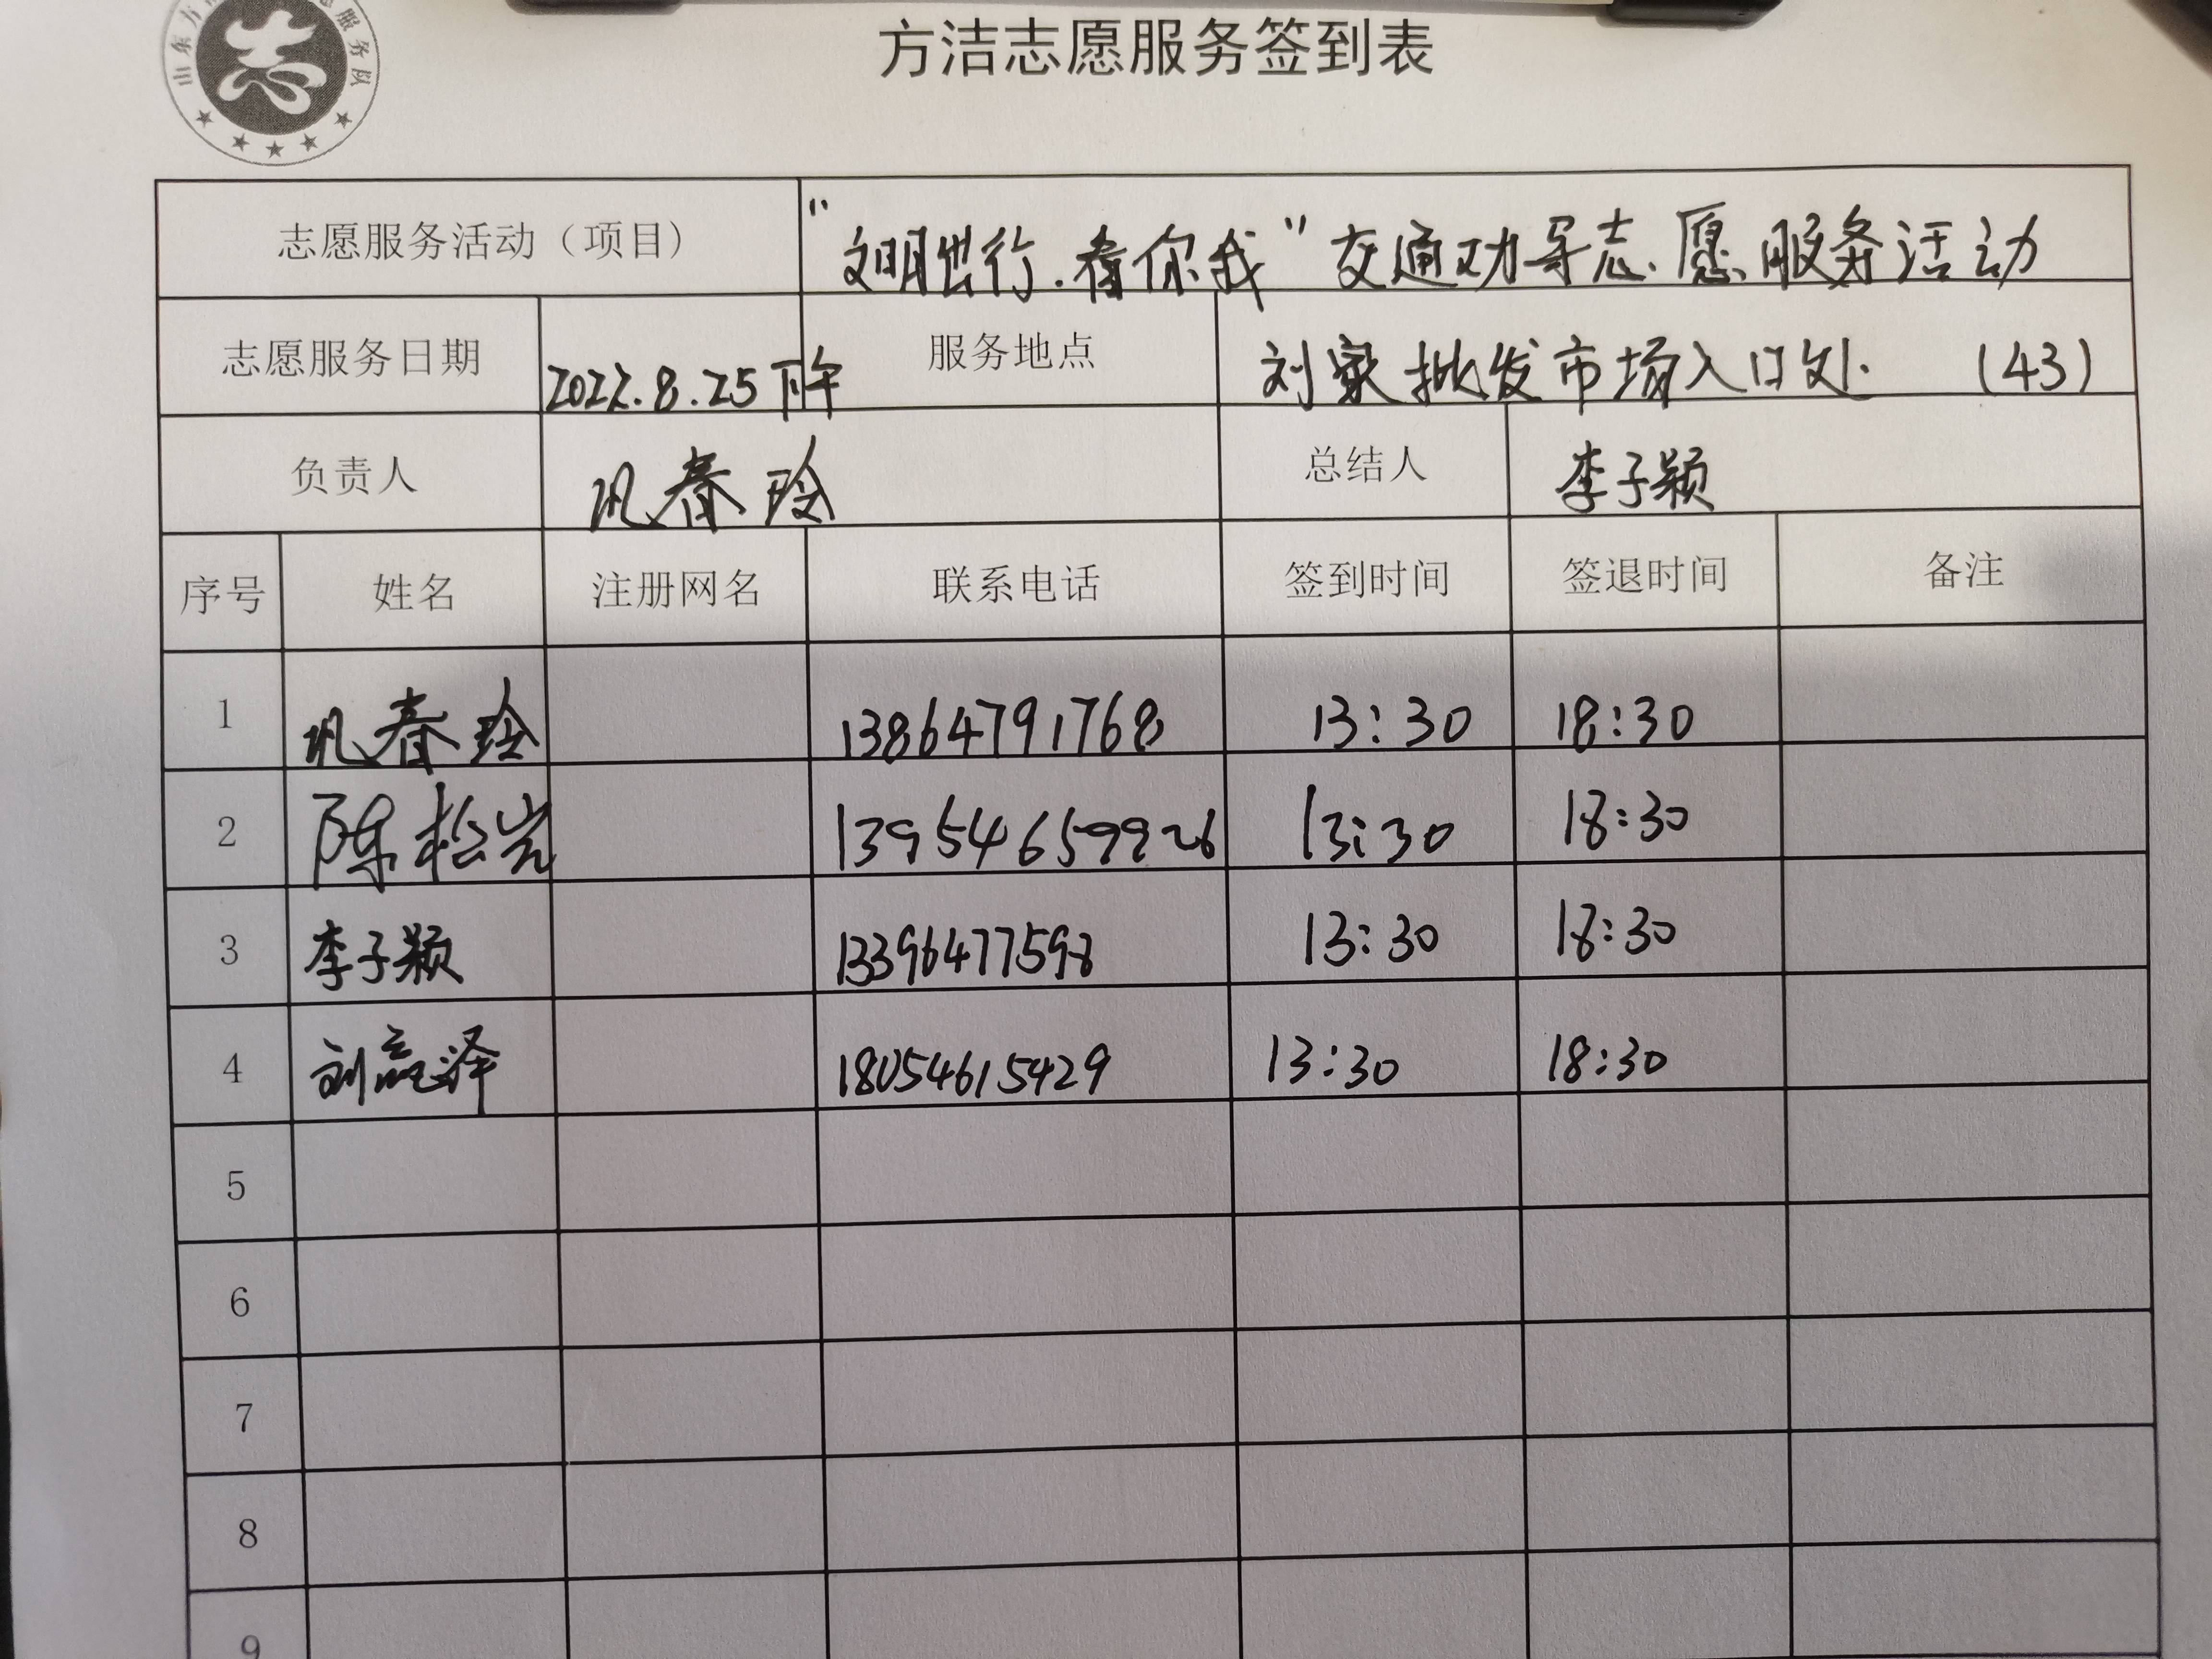 方洁志愿服务签到表
志愿服务活动（项目） “文明出行.看你我”交通劝导志愿服务活动
志愿服务日期 2022.8.25下午 服务地点 刘家批发市场入口处. (43)
负责人 巩春玲 总结人 李子颖
序号 姓名 注册网名 联系电话 签到时间 签退时间 备注
1 巩春玲 13864791768 13:30 18:30
2 陈松岩 13:30 18:30
3 李子颖 13396477598 13:30 18:30
4 刘赢泽 18054615429 13:30 18:30
5
6
7
8
9